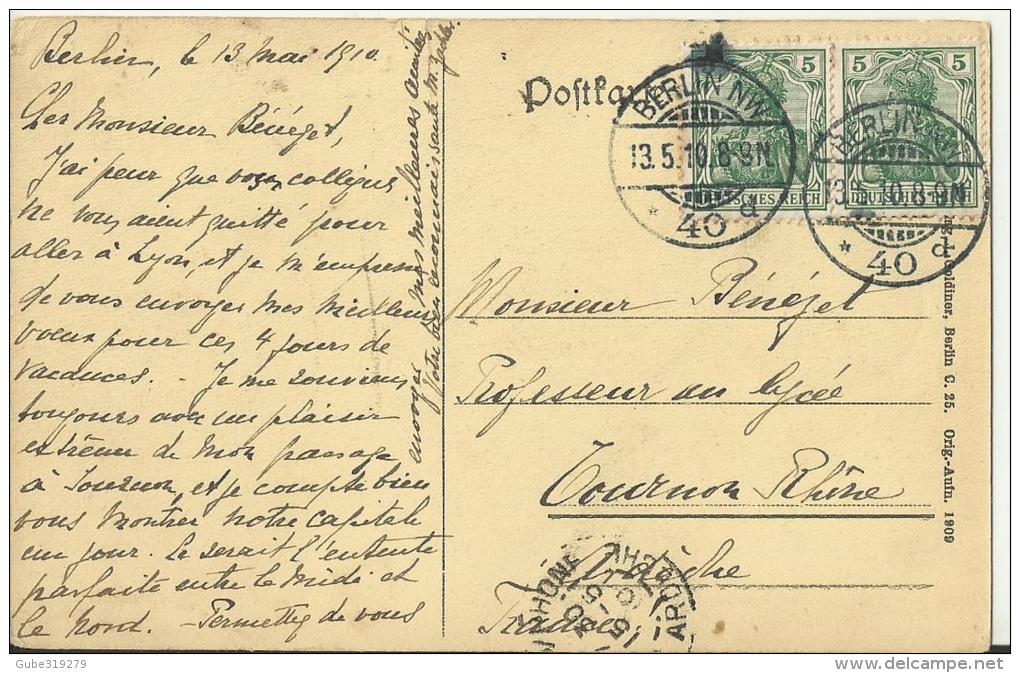 Berlin, le 13 Mai 1910.
Cher Monsieur Bénézet,
J'ai peur que vos collègues
ne vous aient quitté pour
aller à Lyon, et je m'empresse
de vous envoyer mes meilleurs
voeux pour ces 4 jours de
vacances. - Je me souviens
toujours avec un plaisir
extrême de mon passage
à Tournon, et je compte bien
vous montrer notre capitale
un jour. Ce serait l'entente
parfaite entre le Midi et
le Nord. - Permettez de vous
envoyer mes meilleures amitiés
Votre bien reconnaissante M.
Postkar
5 5
5 5
DEUTSCHES REICH
DEUTSCHES REICH
BERLIN NW
13.5.10.8-9N
* 40 d
BERLIN NW
13.5.10.8-9N
* 40 d
Monsieur Bénézet
Professeur au lycée
Tournon Rhône
Ardèche
France
RHONE
ARDECHE
Goldiner, Berlin C. 25. Orig.-Aufn. 1909
Gube319279
delcampe.net